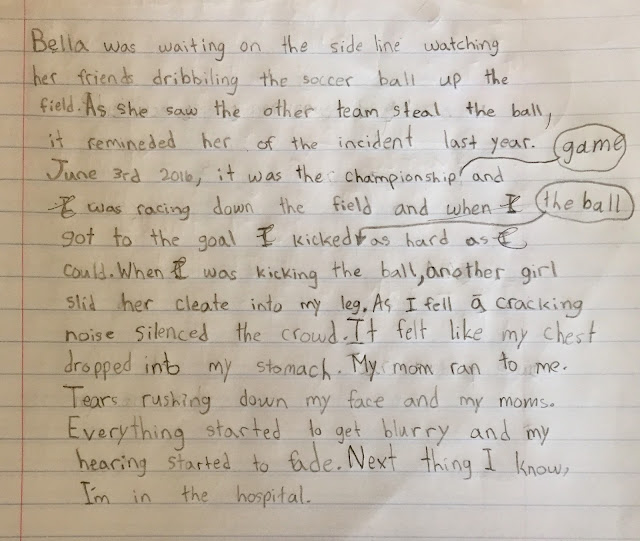 Bella was waiting on the side line watching
her friends dribbiling the soccer ball up the
field. As she saw the other team steal the ball,
it remineded her of the incident last year.
game
June 3rd 2016, it was the championship and
I was racing down the field and when I
the ball
got to the goal I kicked as hard as I
could. When I was kicking the ball, another girl
slid her cleate into my leg. As I fell a cracking
noise silenced the crowd. It felt like my chest
dropped into my stomach. My mom ran to me.
Tears rushing down my face and my moms.
Everything started to get blurry and my
hearing started to fade. Next thing I know,
I'm in the hospital.